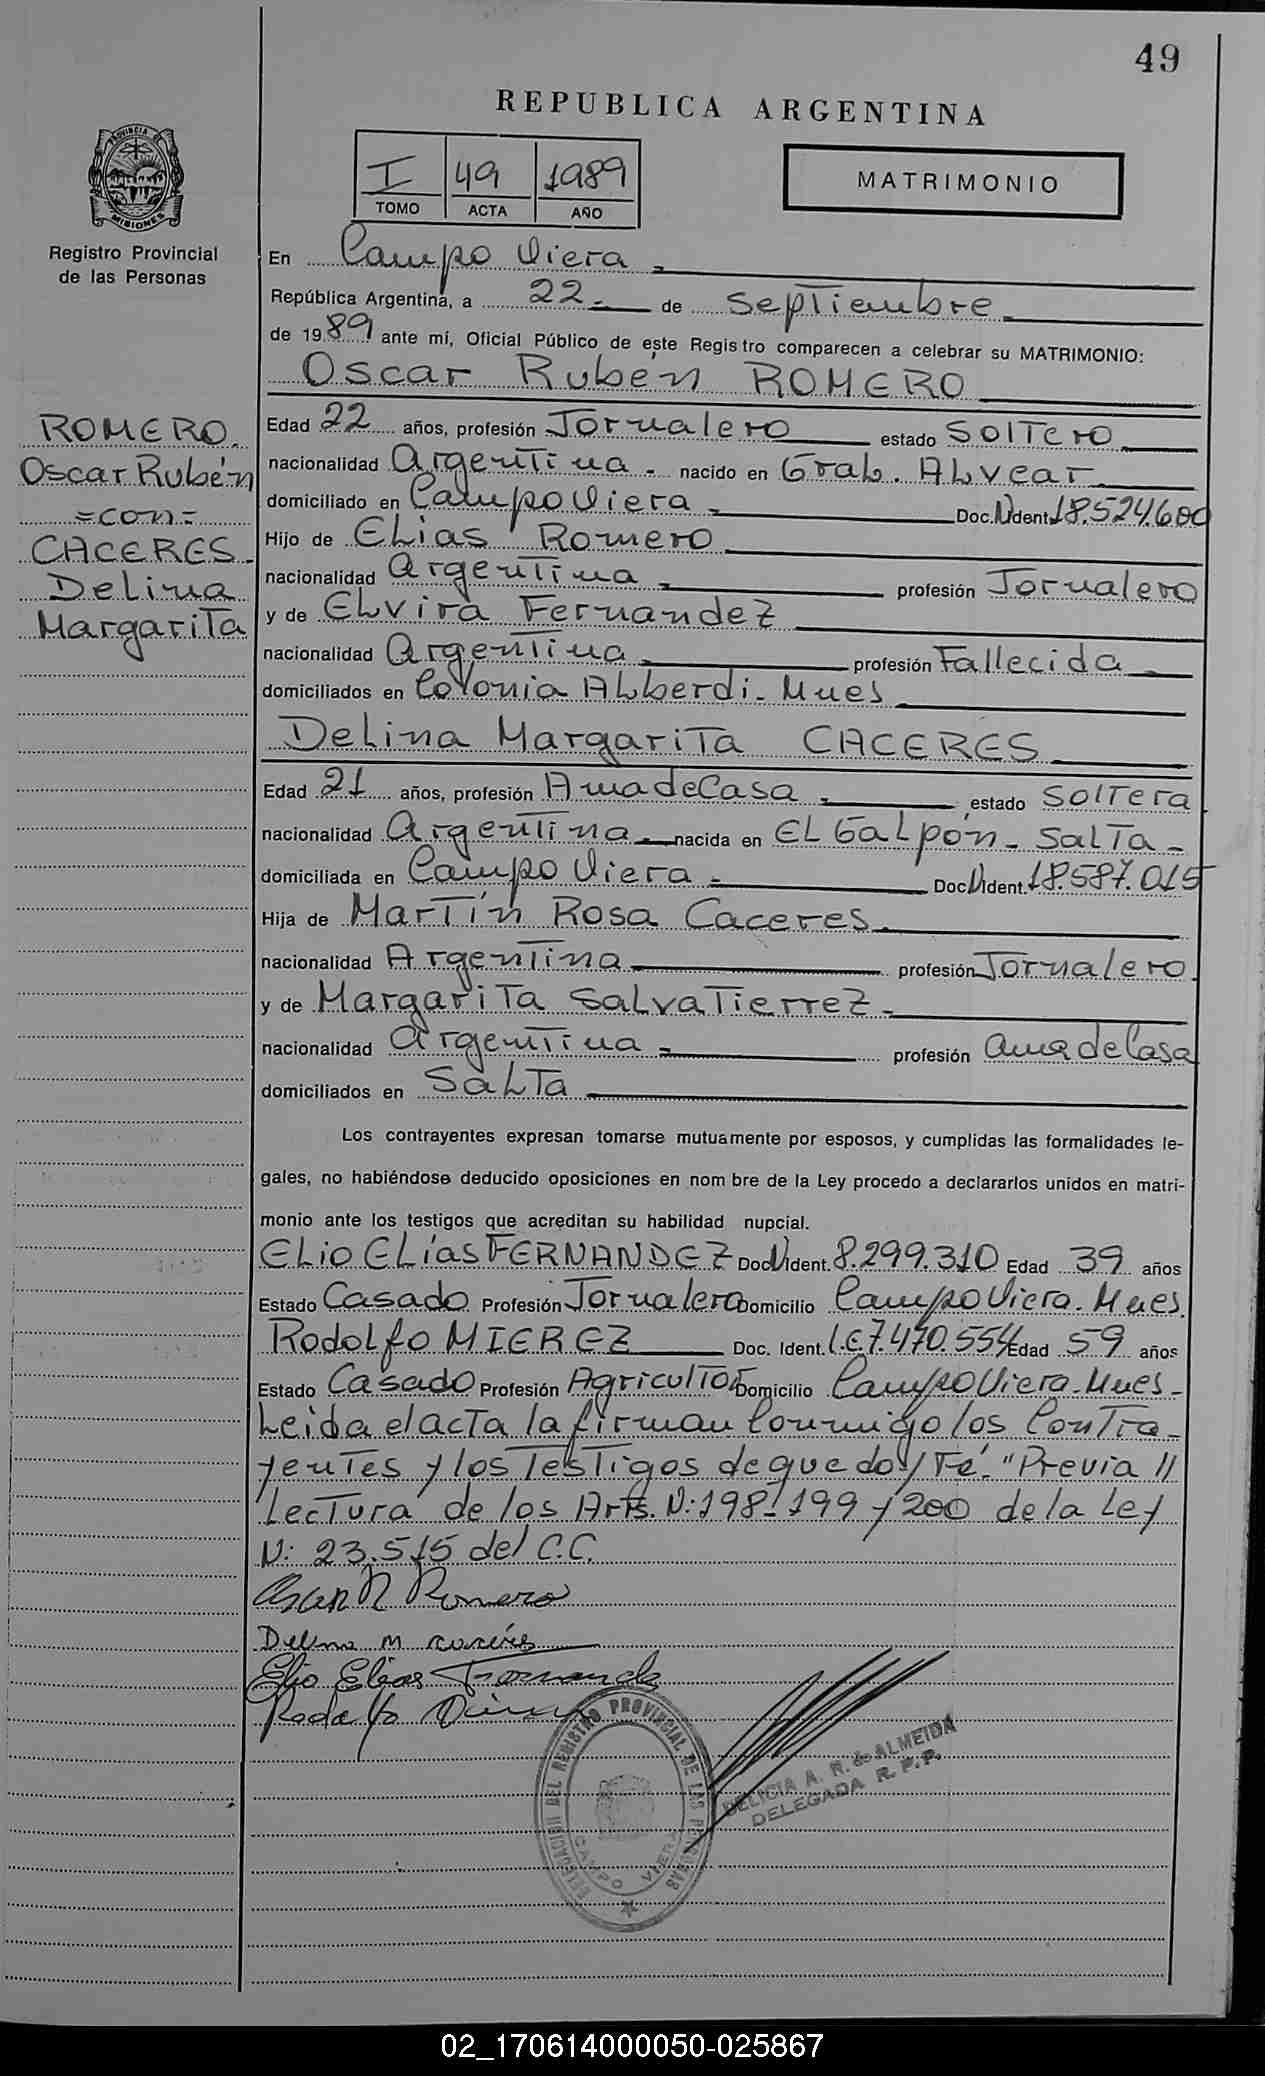 49
REPUBLICA ARGENTINA
I 49 1989
TOMO ACTA AÑO
MATRIMONIO
PROVINCIA DE
MISIONES
Registro Provincial
de las Personas
ROMERO
Oscar Rubén
=con=
CACERES
Delina
Margarita
En Campo Viera
República Argentina, a 22 de septiembre
de 1989 ante mí, Oficial Público de este Registro comparecen a celebrar su MATRIMONIO:
Oscar Rubén ROMERO
Edad 22 años, profesión Jornalero estado soltero
nacionalidad Argentina nacido en Gral. Alvear
domiciliado en Campo Viera Doc.N Ident 18.524.600
Hijo de Elias Romero
nacionalidad argentina profesión Jornalero
y de Elvira Fernandez
nacionalidad Argentina profesión Fallecida
domiciliados en Colonia Alberdi - Mnes
Delina Margarita CACERES
Edad 21 años, profesión Ama de Casa estado soltera
nacionalidad argentina nacida en El Galpón - Salta -
domiciliada en Campo Viera Doc N Ident. 18.587.015
Hija de Martín Rosa Caceres
nacionalidad Argentina profesión Jornalero
y de Margarita Salvatierrez
nacionalidad argentina profesión ama de Casa
domiciliados en Salta
Los contrayentes expresan tomarse mutuamente por esposos, y cumplidas las formalidades le-
gales, no habiéndose deducido oposiciones en nom bre de la Ley procedo a declararlos unidos en matri-
monio ante los testigos que acreditan su habilidad nupcial.
Elio Elías FERNANDEZ Doc N Ident. 8.299.310 Edad 39 años
Estado Casado Profesión Jornalero Domicilio Campo Viera - Mnes
Rodolfo MIEREZ Doc. Ident. L.E 7.470.554 Edad 59 años
Estado Casado Profesión Agricultor Domicilio Campo Viera - Mnes -
Leida el acta la firman conmigo los Contra-
yentes y los Testigos de que doy Fé. "Previa //
Lectura de los Arts. N: 198-199 y 200 de la Ley
N: 23.515 del C.C.
Oscar R Romero
Delina M caceres
Elio Elias Fernandez
Rodolfo
DELEGACION DEL REGISTRO PROVINCIAL DE LAS PERSONAS
CAMPO VIERA
DELICIA A. R. de ALMEIDA
DELEGADA R. P. P.
02_170614000050-025867